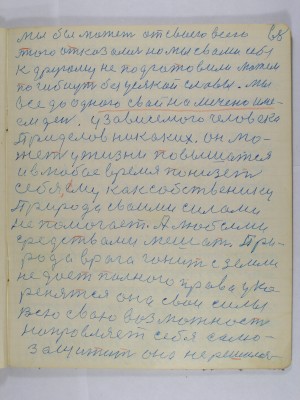 68
мы бы может от своего всего
этого отказался но мы сами себя
к другому не подготовили можем
погибнуть без всякой славы. мы
все до одного свой намечено име-
ем день. у зависимого человека
Приделов никаких. он мо-
жет у жизни повышатся
и в любое время понизет
себя, ему как собственику
Природа своими силами
не помогает. А любыми
средствами мешает. При-
рода врага гонит с земли
не дает полного права уко-
ренятся она свои силы
всю свою возможность
направляет себя само-
защитит она не решила